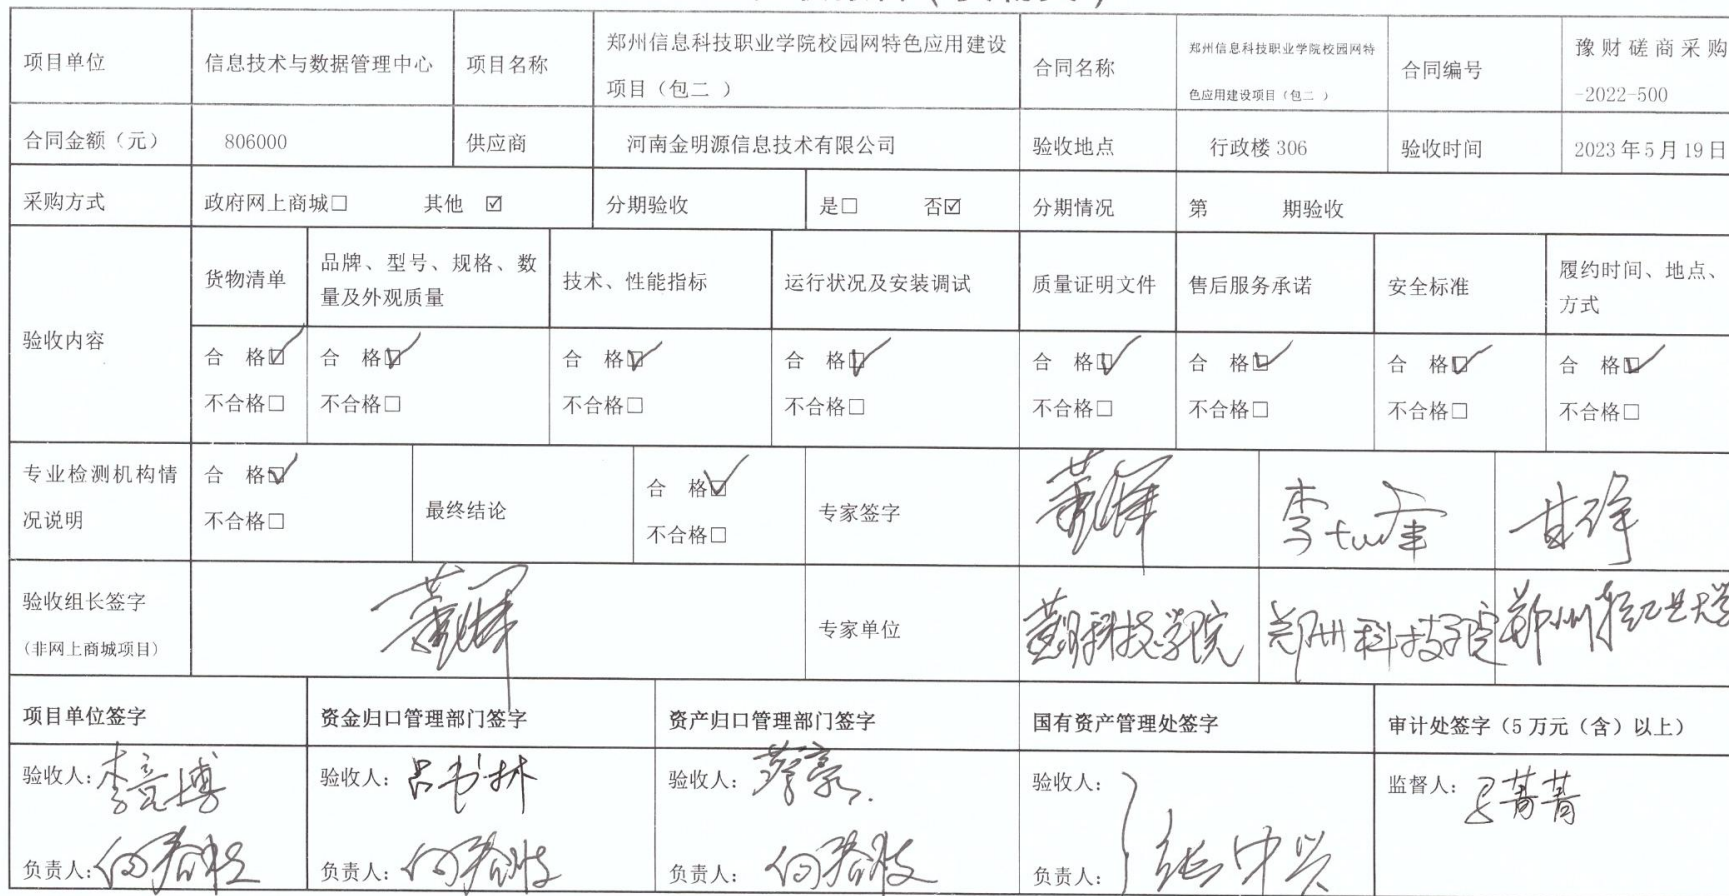 项目单位
信息技术与数据管理中心
项目名称
郑州信息科技职业学院校园网特色应用建设
项目（包二 ）
合同名称
郑州信息科技职业学院校园网特
色应用建设项目（包二 ）
合同编号
豫财磋商采购
-2022-500
合同金额（元）
806000
供应商
河南金明源信息技术有限公司
验收地点
行政楼 306
验收时间
2023 年 5 月 19 日
采购方式
政府网上商城□ 其他 ☑
分期验收
是□ 否☑
分期情况
第 期验收
验收内容
货物清单
品牌、型号、规格、数
量及外观质量
技术、性能指标
运行状况及安装调试
质量证明文件
售后服务承诺
安全标准
履约时间、地点、
方式
合 格☑
不合格□
合 格☑
不合格□
合 格☑
不合格□
合 格☑
不合格□
合 格☑
不合格□
合 格☑
不合格□
合 格☑
不合格□
合 格☑
不合格□
专业检测机构情
况说明
合 格☑
不合格□
最终结论
合 格☑
不合格□
专家签字
验收组长签字
(非网上商城项目)
专家单位
郑州科技学院
郑州轻工业大学
项目单位签字
资金归口管理部门签字
资产归口管理部门签字
国有资产管理处签字
审计处签字（5 万元（含）以上）
验收人：李竞博
负责人：
验收人：吕书林
负责人：
验收人：
负责人：
验收人：
负责人：张中兴
监督人：